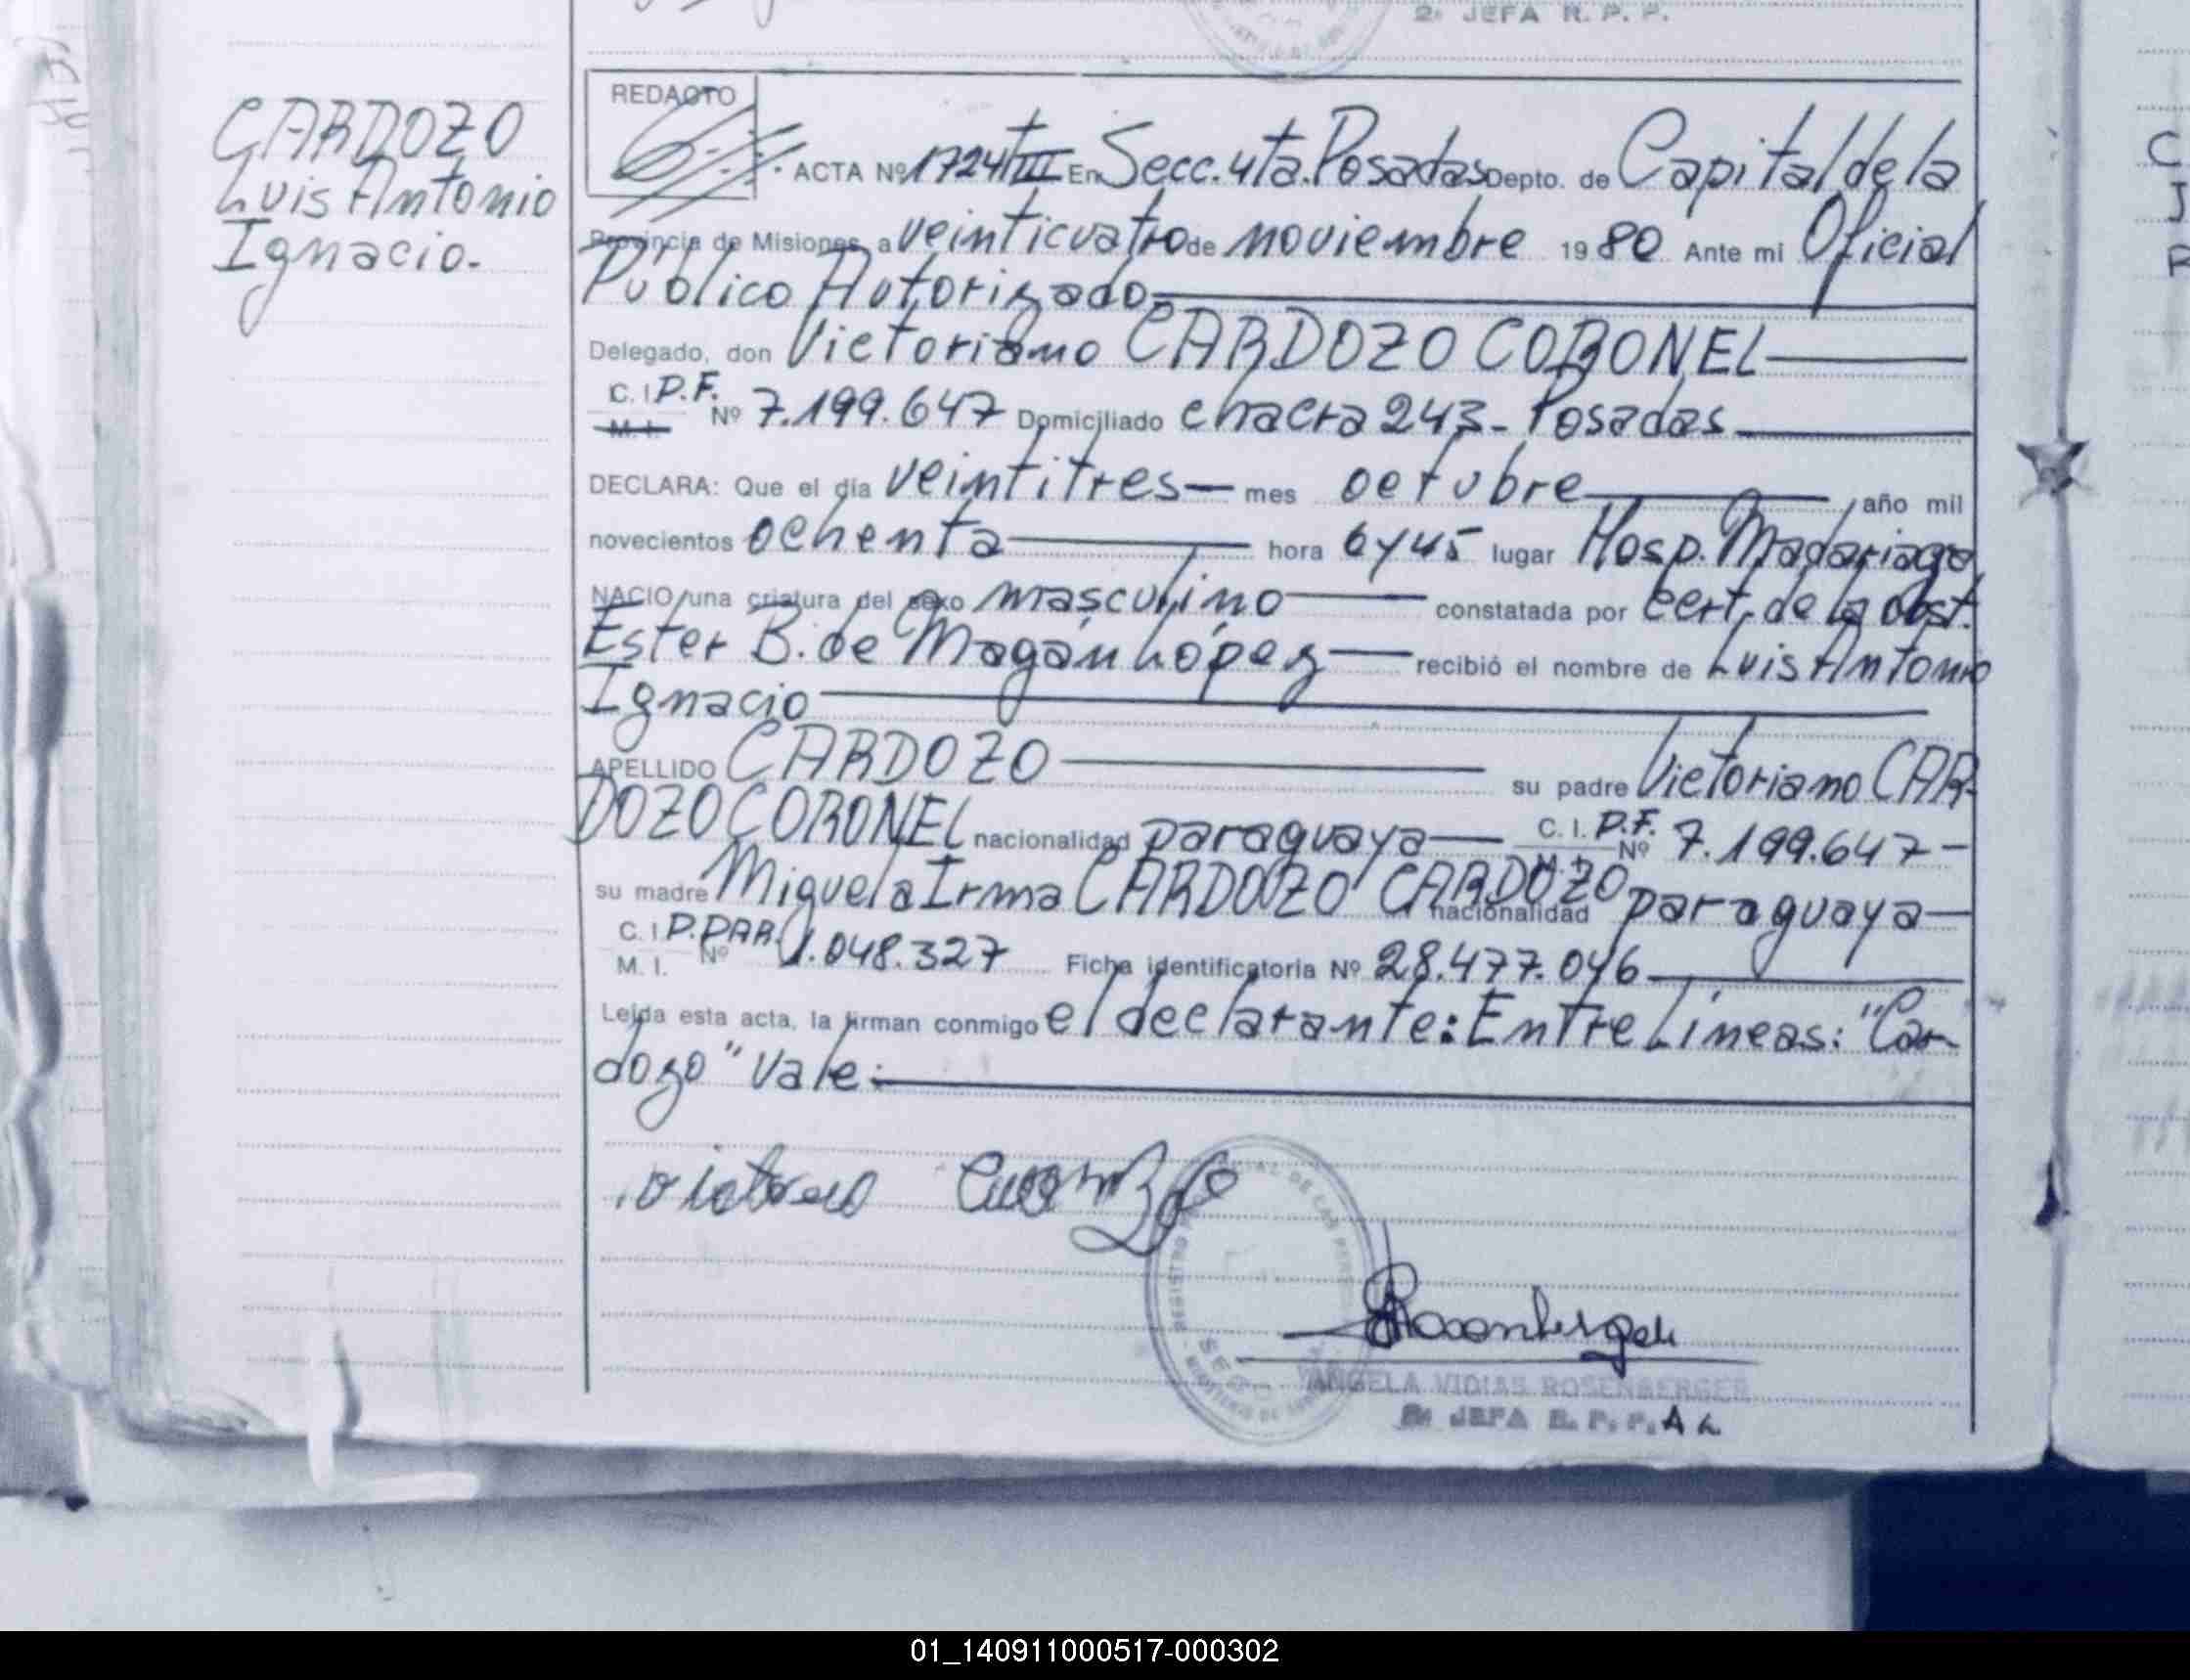 2º JEFA R. P. P.
CARDOZO
Luis Antonio
Ignacio.
REDACTO
ACTA Nº 1724/III En Secc. 4ta. Posadas Depto. de Capital de la
Provincia de Misiones, a veinticuatro de noviembre 1980 Ante mi Oficial
Público Autorizado
Delegado, don Victoriano CARDOZO CORONEL
C. I. P.F.
M. I. Nº 7.199.647 Domiciliado chacra 243 - Posadas
DECLARA: Que el día veintitres mes octubre año mil
novecientos ochenta hora 6 y 45 lugar Hosp. Madariaga
NACIO una criatura del sexo masculino constatada por cert. de la obst.
Ester B. de Magán López recibió el nombre de Luis Antonio
Ignacio
APELLIDO CARDOZO su padre Victoriano CAR-
DOZO CORONEL nacionalidad paraguaya C. I. P.F. M. I. Nº 7.199.647-
su madre Miguela Irma CARDOZO CARDOZO nacionalidad paraguaya
C. I. P. PAR.
M. I. Nº 1.048.327 Ficha identificatoria Nº 28.477.046
Leída esta acta, la firman conmigo el declarante: Entre Líneas: "Car-
dozo" Vale:
REGISTRO
Rosenberger
ANGELA VIDIAS ROSENBERGER
2º JEFA R. P. P. A L
C
J
R
01_140911000517-000302